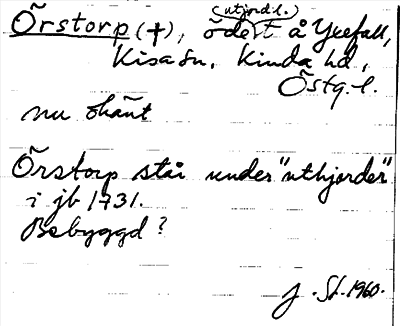 (utjord l.)
Örstorp (+), öde t å Yxefall,
Kisa sn, Kinda hd,
Östg. l.
nu okänt
Örstorp står under "uthjorder"
i jb 1731.
Bebyggd?
J. St. 1960.